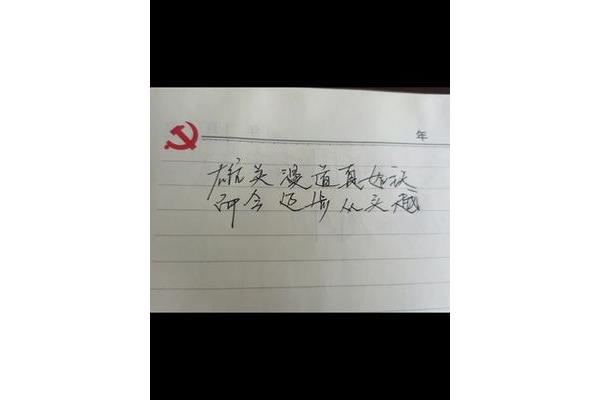 年
雄关漫道真如铁
而今迈步从头越